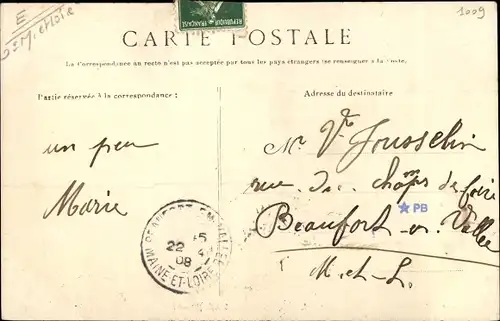 E
M. et Loire
1009
REPUBLIQUE FRANÇAISE
CARTE POSTALE
La Correspondance au recto n'est pas acceptée par tous les pays étrangers (se renseigner à la Poste.
Partie réservée à la correspondance :
Adresse du destinataire
un peu
Marie
Mr Vr Jousselin
rue du champ de foire
Beaufort-en-Vallée
M.-et-L.
PB
BEAUFORT-EN-VALLEE
22
08
MAINE-ET-LOIRE